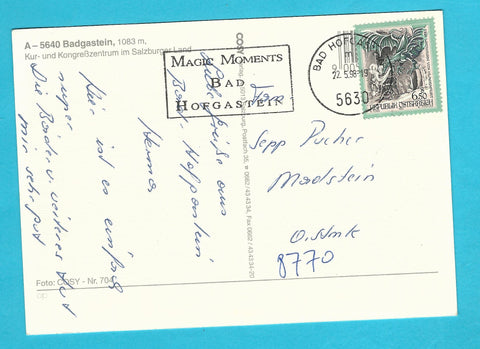 A – 5640 Badgastein, 1083 m,
Kur- und Kongreßzentrum im Salzburger Land
MAGIC MOMENTS
BAD
HOFGASTEIN
BAD HOFGAST
22.5.98-19
5630
6.50
REPUBLIK ÖSTERREICH
Liebe Grüße aus
Bad
Hier ist es einfach
super
Die Bäder u. weiteres tut
mir sehr gut
Sepp Pucher
Madstein
O. Stmk
8770
COSY
Postfach 55, 0662/43 43 34, Fax 0662/43 43 34-20
Foto: COSY - Nr. 704